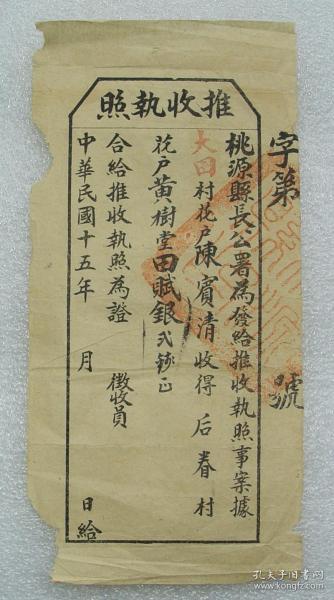 推收執照
字第 號
桃源縣長公署為發給推收執照事案據
大田村花戶陳賓清收得后眷村
花戶黃樹堂田賦銀弍錢正
合給推收執照為證 徵收員
中華民國十五年 月 日給
孔夫子旧书网